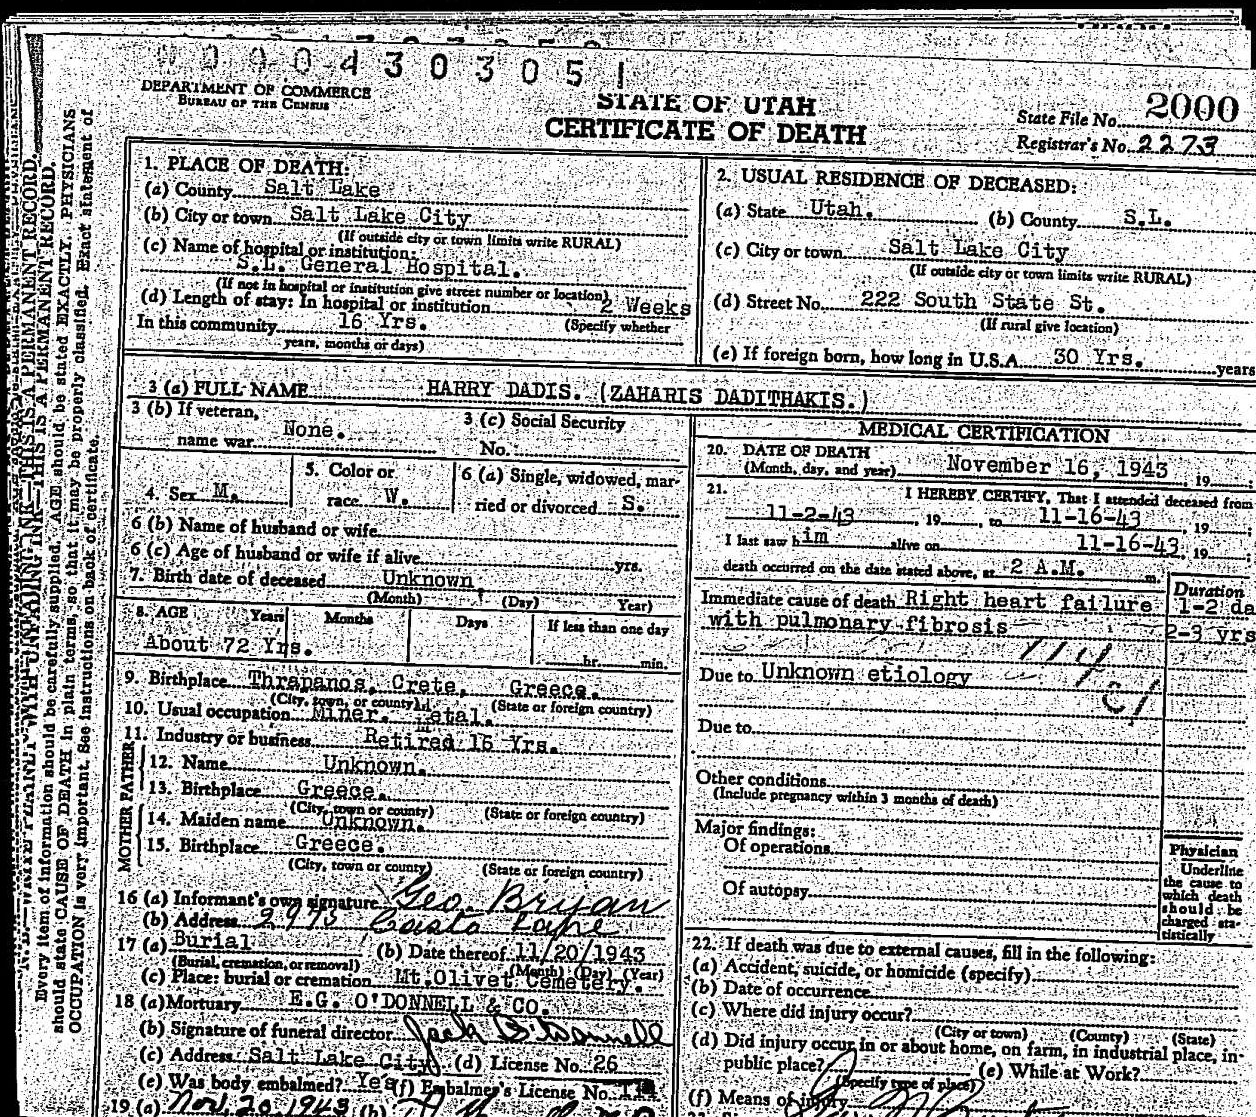 0004303051
DEPARTMENT OF COMMERCE
BUREAU OF THE CENSUS
STATE OF UTAH
CERTIFICATE OF DEATH
State File No. 2000
Registrar's No. 2273
Every item of information should be carefully supplied. AGE should be stated EXACTLY. PHYSICIANS
should state CAUSE OF DEATH in plain terms, so that it may be properly classified. Exact statement of
OCCUPATION is very important. See instructions on back of certificate.
1. PLACE OF DEATH:
(a) County Salt Lake
(b) City or town Salt Lake City
(If outside city or town limits write RURAL)
(c) Name of hospital or institution:
S.L. General Hospital.
(If not in hospital or institution give street number or location)
(d) Length of stay: In hospital or institution 2 Weeks
In this community 16 Yrs. (Specify whether
years, months or days)
2. USUAL RESIDENCE OF DECEASED:
(a) State Utah. (b) County S.L.
(c) City or town Salt Lake City
(If outside city or town limits write RURAL)
(d) Street No. 222 South State St.
(If rural give location)
(e) If foreign born, how long in U.S.A. 30 Yrs. years
3 (a) FULL NAME HARRY DADIS. (ZAHARIS DADITHAKIS.)
3 (b) If veteran,
name war None.
3 (c) Social Security
No.
4. Sex M.
5. Color or
race W.
6 (a) Single, widowed, mar-
ried or divorced S.
6 (b) Name of husband or wife
6 (c) Age of husband or wife if alive yrs.
7. Birth date of deceased Unknown
(Month) (Day) Year)
8. AGE Years Months Days If less than one day
About 72 Yrs. hr. min.
9. Birthplace Thrapanos, Crete, Greece.
(City, town, or county) (State or foreign country)
10. Usual occupation Miner. Metal.
11. Industry or business Retired 16 Yrs.
FATHER
12. Name Unknown.
13. Birthplace Greece.
(City, town or county) (State or foreign country)
MOTHER
14. Maiden name Unknown.
15. Birthplace Greece.
(City, town or county) (State or foreign country)
16 (a) Informant's own signature Geo. Bryan
(b) Address 2975 Casto Lane
17 (a) Burial (b) Date thereof 11/20/1943
(Burial, cremation, or removal) (Month) (Day) (Year)
(c) Place: burial or cremation Mt.Olivet Cemetery.
18 (a) Mortuary E.G. O'DONNELL & CO.
(b) Signature of funeral director Jack O'Donnell
(c) Address Salt Lake City (d) License No. 26
(e) Was body embalmed? Yes (f) Embalmer's License No. 114
19 (a) Nov. 20, 1943 (b)
MEDICAL CERTIFICATION
20. DATE OF DEATH
(Month, day, and year) November 16, 1943 19
21. I HEREBY CERTIFY, That I attended deceased from
11-2-43, 19 , to 11-16-43, 19 ;
I last saw him alive on 11-16-43, 19 ;
death occurred on the date stated above, at 2 A.M. m.
Duration
Immediate cause of death Right heart failure 1-2 da
with pulmonary fibrosis 2-3 yrs
Due to Unknown etiology
Due to
Other conditions
(Include pregnancy within 3 months of death)
Major findings:
Of operations
Of autopsy
Physician
Underline
the cause to
which death
should be
charged sta-
tistically
22. If death was due to external causes, fill in the following:
(a) Accident, suicide, or homicide (specify)
(b) Date of occurrence
(c) Where did injury occur?
(City or town) (County) (State)
(d) Did injury occur in or about home, on farm, in industrial place, in-
public place? (e) While at Work?
(Specify type of place)
(f) Means of injury